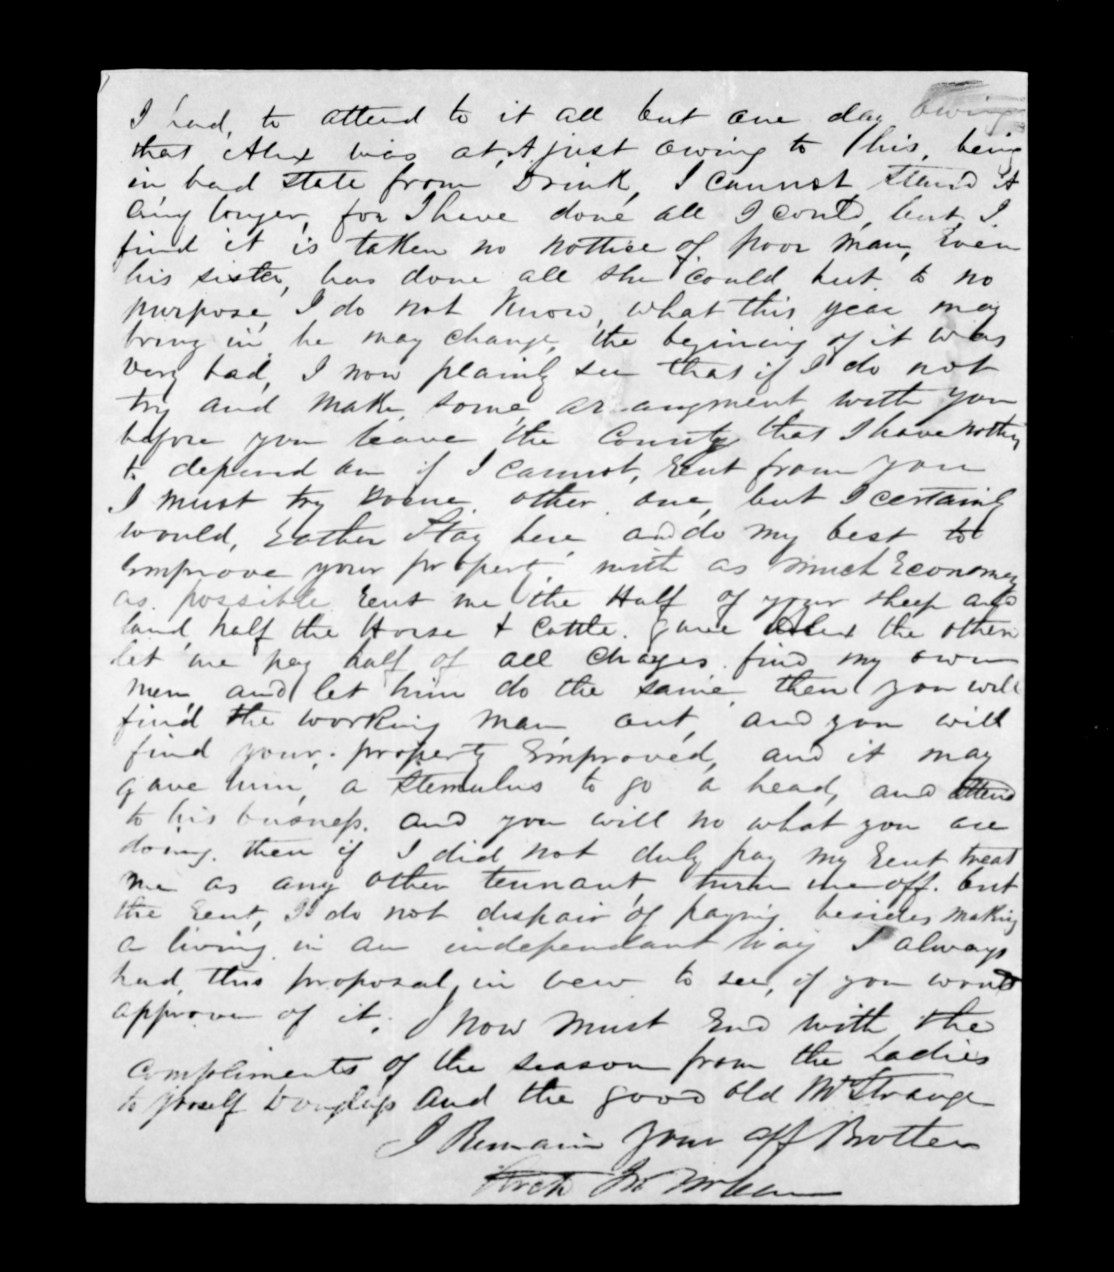 I had, to attend to it all but one day owing
that Alex was at, A just owing to this, being
in bad state from Drink, I cannot stand it
any longer, for I have done all I could, but I
find it is taken no nottice of poor man, Even
his sister, has done all she could but to no
purpose, I do not Know, what this year may
bring in he may change, the begining of it was
very bad, I now plainly see that if I do not
try and make some, arangment with you
before you leave the County that I have nothing
to depend on if I cannot, Rent from you
I must try some other one, but I certainly
would, Rather Stay here and do my best to
Emprove your propert with as much Economey
as possible Rent me the Half of your sheep and
land half the Horse & Cattle. gave Alex the other
let me pay half of all Chages find my own
men and let him do the same then you will
find the working man out, and you will
find your property Emproved, and it may
gave him, a Stemulus to go a head, and attend
to his busness. and you will no what you are
doing. then if I did not duly pay my Rent treat
me as any other tennant, turn me off. but
the Rent, I do not dispair of paying besides making
a living in an independant way I always
had, this proposal in vew to see, if you would
approve of it. I now must End with the
Compliments of the season from the Ladies
to yourself Douglas and the good old Mr Strange
I Remain your aff Brother
Archd Jno McLean